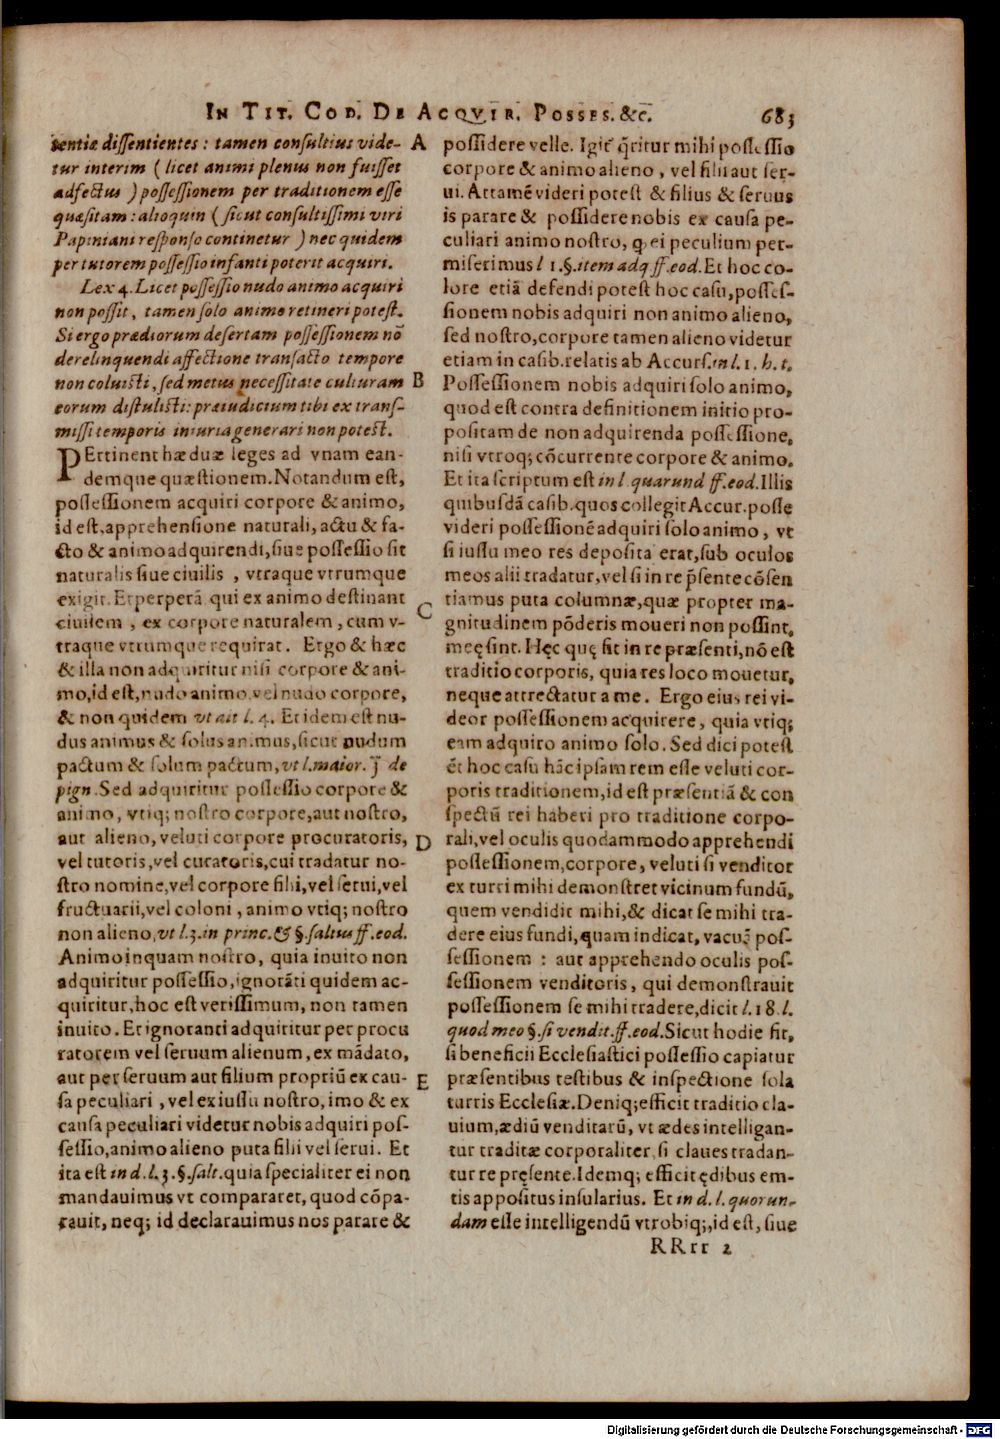 IN TIT. COD. DE ACQVIR. POSSES. &c. 683
tentiæ dissentientes: tamen consultius vide-
tur interim (licet animi plenus non fuisset
adfectus) possessionem per traditionem esse
quæsitam: alioquin (sicut consultissimi viri
Papiniani responso continetur) nec quidem
per tutorem possessio infanti poterit acquiri.
Lex 4. Licet possessio nudo animo acquiri
non possit, tamen solo animo retineri potest.
Si ergo prædiorum desertam possessionem nō
derelinquendi affectione transacto tempore
non coluisti, sed metus necessitate culturam
eorum distulisti: præiudicium tibi ex trans-
missi temporis iniuria generari non potest.
PErtinent hæ duæ leges ad vnam ean-
demque quæstionem. Notandum est,
possessionem acquiri corpore & animo,
id est, apprehensione naturali, actu & fa-
cto & animo adquirendi, siue possessio sit
naturalis siue ciuilis, vtraque vtrumque
exigit. Et perperā qui ex animo destinant
ciuilem, ex corpore naturalem, cum v-
traque vtrumque requirat. Ergo & hæc
& illa non adquiritur nisi corpore & ani-
mo, id est, nudo animo, vel nudo corpore,
& non quidem vt ait l. 4. Et idem est nu-
dus animus & solus animus, sicut nudum
pactum & solum pactum, vt l. maior. ʃ de
pign. Sed adquiritur possessio corpore &
animo, vtiq; nostro corpore, aut nostro,
aut alieno, veluti corpore procuratoris,
vel tutoris, vel curatoris, cui tradatur no-
stro nomine, vel corpore filii, vel serui, vel
fructuarii, vel coloni, animo vtiq; nostro
non alieno, vt l. 3. in princ. & §. saltus ff. eod.
Animo inquam nostro, quia inuito non
adquiritur possessio, ignorāti quidem ac-
quiritur, hoc est verissimum, non tamen
inuito. Et ignoranti adquiritur per procu
ratorem vel seruum alienum, ex mādato,
aut per seruum aut filium propriū ex cau-
sa peculiari, vel ex iussu nostro, imo & ex
causa peculiari videtur nobis adquiri pos-
sessio, animo alieno puta filii vel serui. Et
ita est in d. l. 3. §. salt. quia specialiter ei non
mandauimus vt compararet, quod cōpa-
rauit, neq; id declarauimus nos parare &
A
B
C
D
E
possidere velle. Igit' q̄ritur mihi possessio
corpore & animo alieno, vel filii aut ser-
ui. Attamē videri potest & filius & seruus
is parare & possidere nobis ex causa pe-
culiari animo nostro, q ei peculium per-
miserimus l 1. §. item adq. ff. eod. Et hoc co-
lore etiā defendi potest hoc casu, posses-
sionem nobis adquiri non animo alieno,
sed nostro, corpore tamen alieno videtur
etiam in casib. relatis ab Accurs. in l. 1. h. t.
Possessionem nobis adquiri solo animo,
quod est contra definitionem initio pro-
positam de non adquirenda possessione,
nisi vtroq; cōcurrente corpore & animo.
Et ita scriptum est in l. quarund ff. eod. Illis
quibusdā casib. quos collegit Accur. posse
videri possessionē adquiri solo animo, vt
si iussu meo res deposita erat, sub oculos
meos alii tradatur, vel si in re p̄sente cōsen
tiamus puta columnæ, quæ propter ma-
gnitudinem pōderis moueri non possint,
meę sint. Hęc quę fit in re præsenti, nō est
traditio corporis, quia res loco mouetur,
neque attrectatur a me. Ergo eius rei vi-
deor possessionem acquirere, quia vtiq;
eam adquiro animo solo. Sed dici potest
ēt hoc casu hāc ipsam rem esse veluti cor-
poris traditionem, id est præsentiā & con
spectū rei haberi pro traditione corpo-
rali, vel oculis quodammodo apprehendi
possessionem, corpore, veluti si venditor
ex turri mihi demonstret vicinum fundū,
quem vendidit mihi, & dicat se mihi tra-
dere eius fundi, quam indicat, vacuā pos-
sessionem: aut apprehendo oculis pos-
sessionem venditoris, qui demonstrauit
possessionem se mihi tradere, dicit l. 18. l.
quod meo §. si vendit. ff. eod. Sicut hodie fit,
si beneficii Ecclesiastici possessio capiatur
præsentibus testibus & inspectione sola
turris Ecclesiæ. Deniq; efficit traditio cla-
uium, ædiū venditarū, vt ædes intelligan-
tur traditæ corporaliter, si claues tradan-
tur re pręsente. Idemq; efficit ędibus em-
tis appositus insularius. Et in d. l. quorun-
dam esse intelligendū vtrobiq;, id est, siue
RRrr 2
Digitalisierung gefördert durch die Deutsche Forschungsgemeinschaft - DFG